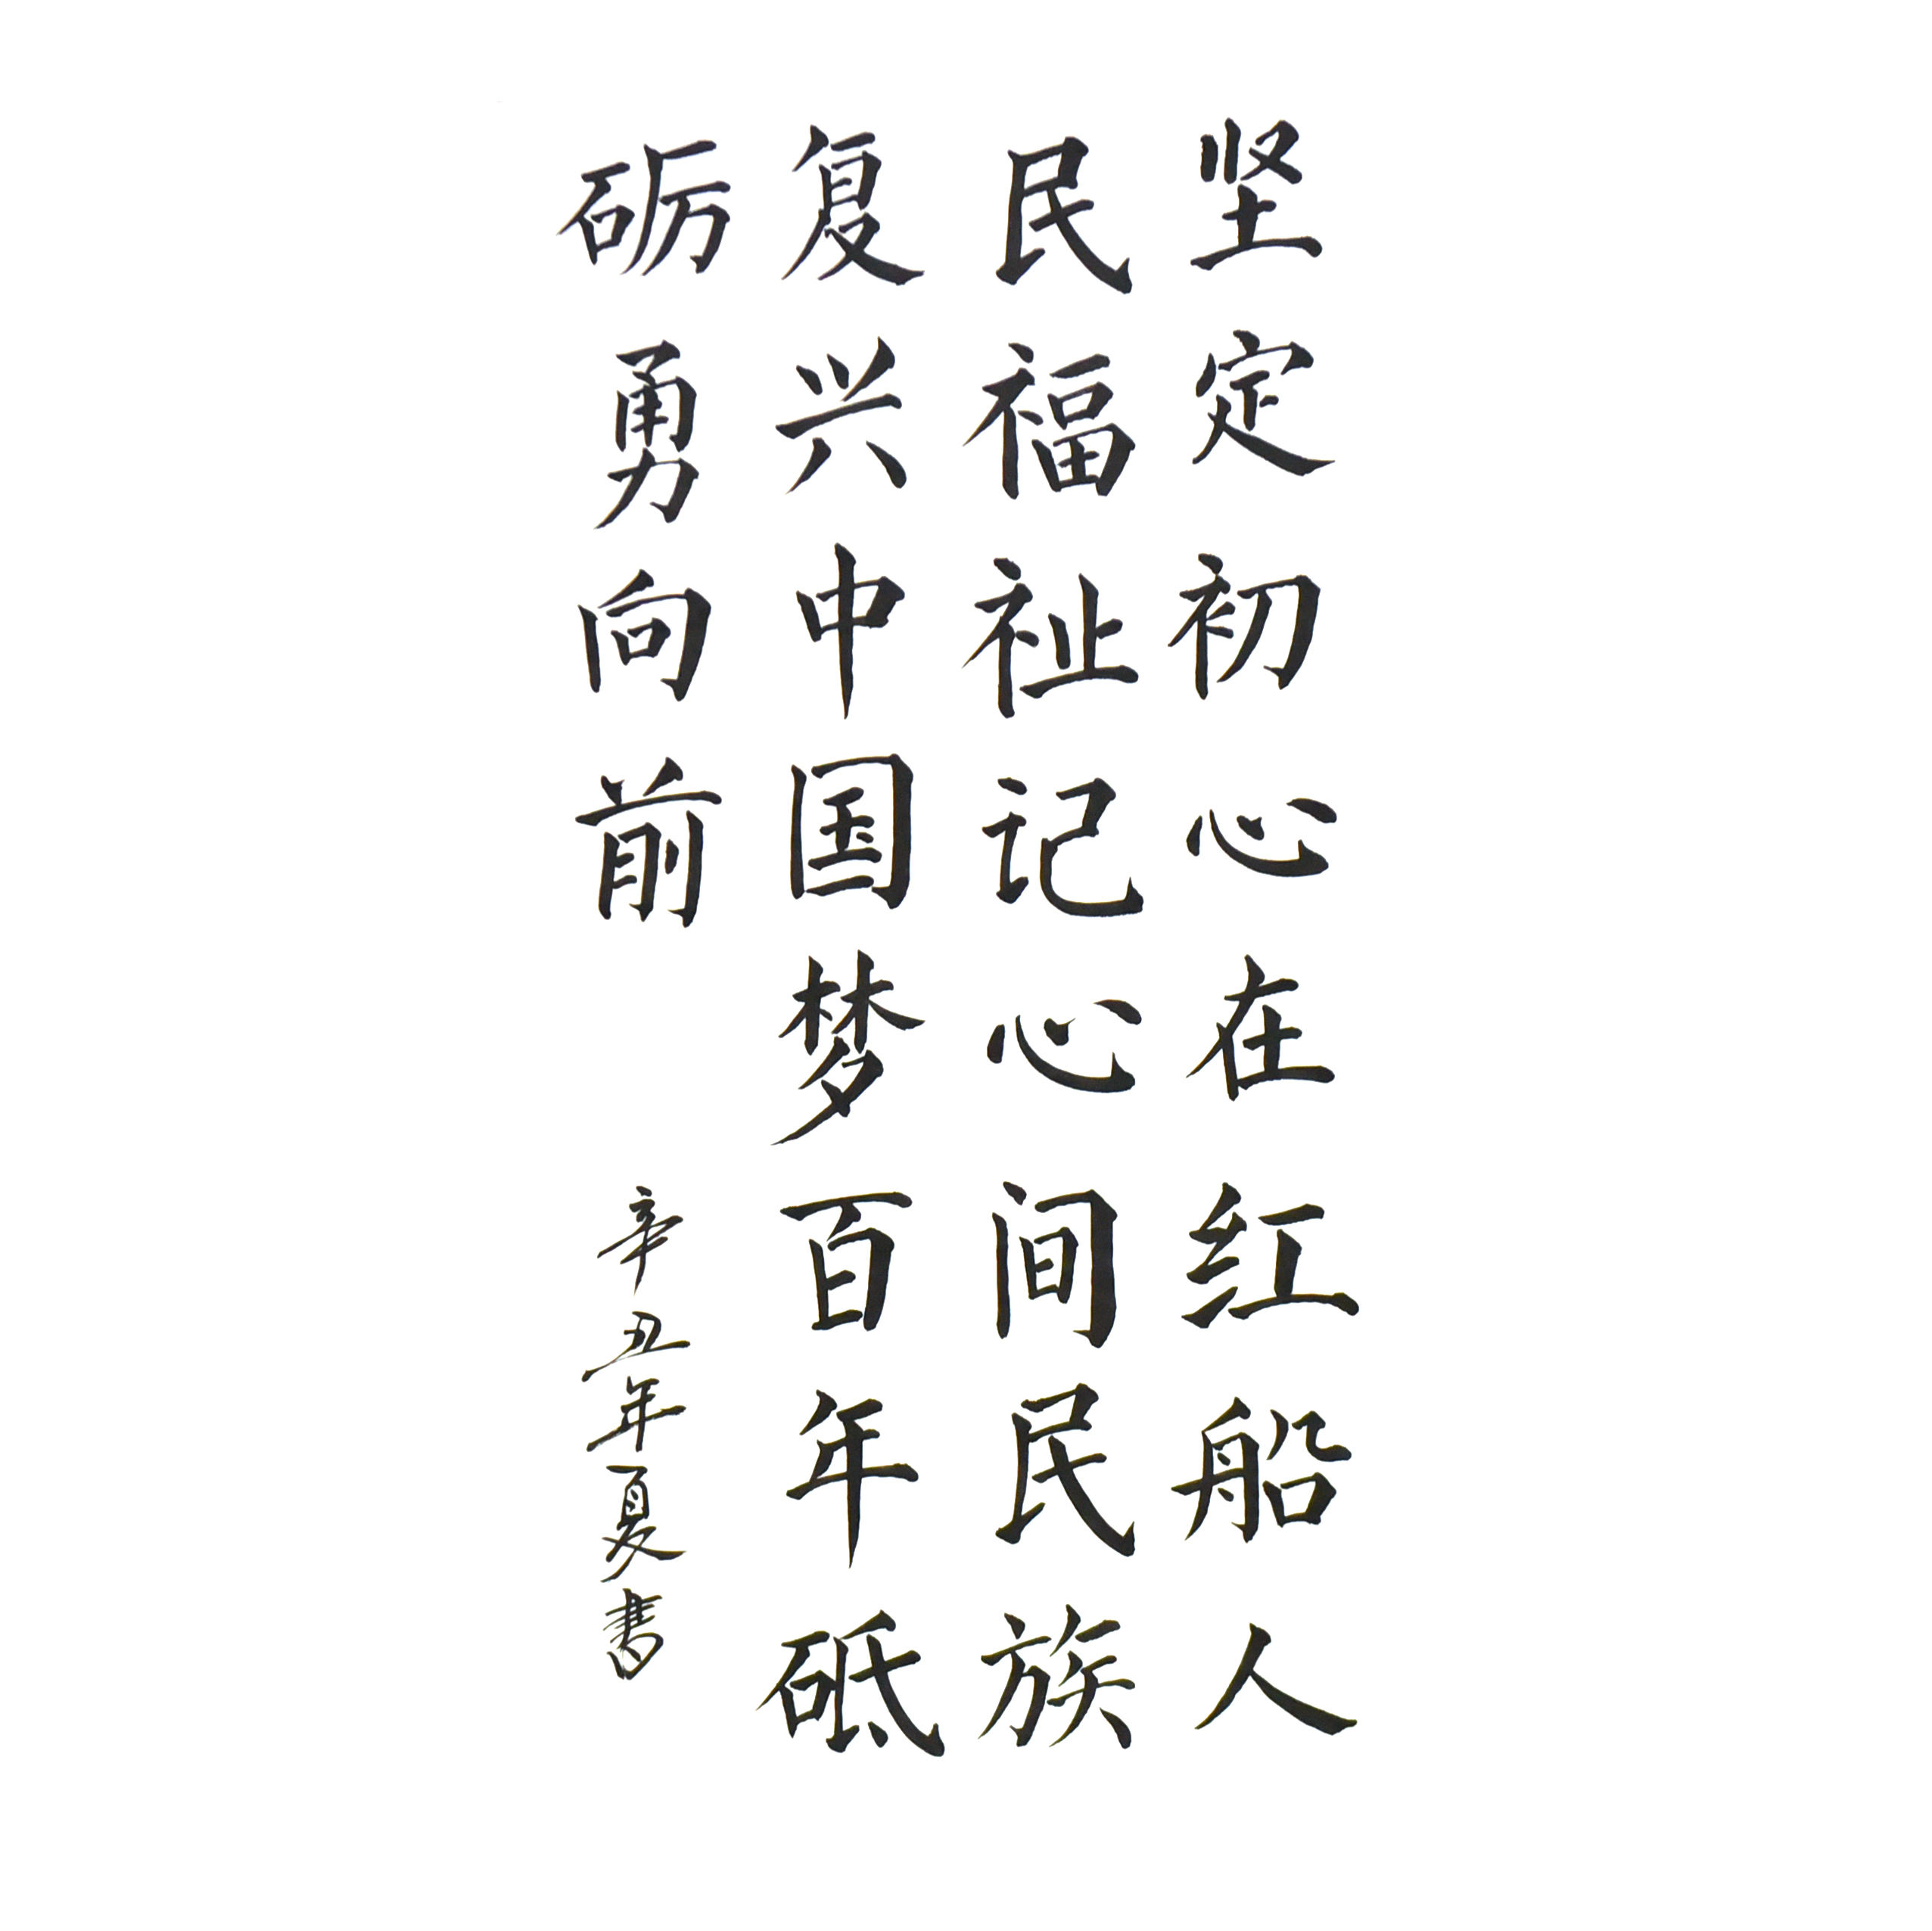 坚定初心在红船人
民福祉记心间民族
复兴中国梦百年砥
砺勇向前
辛丑年夏书